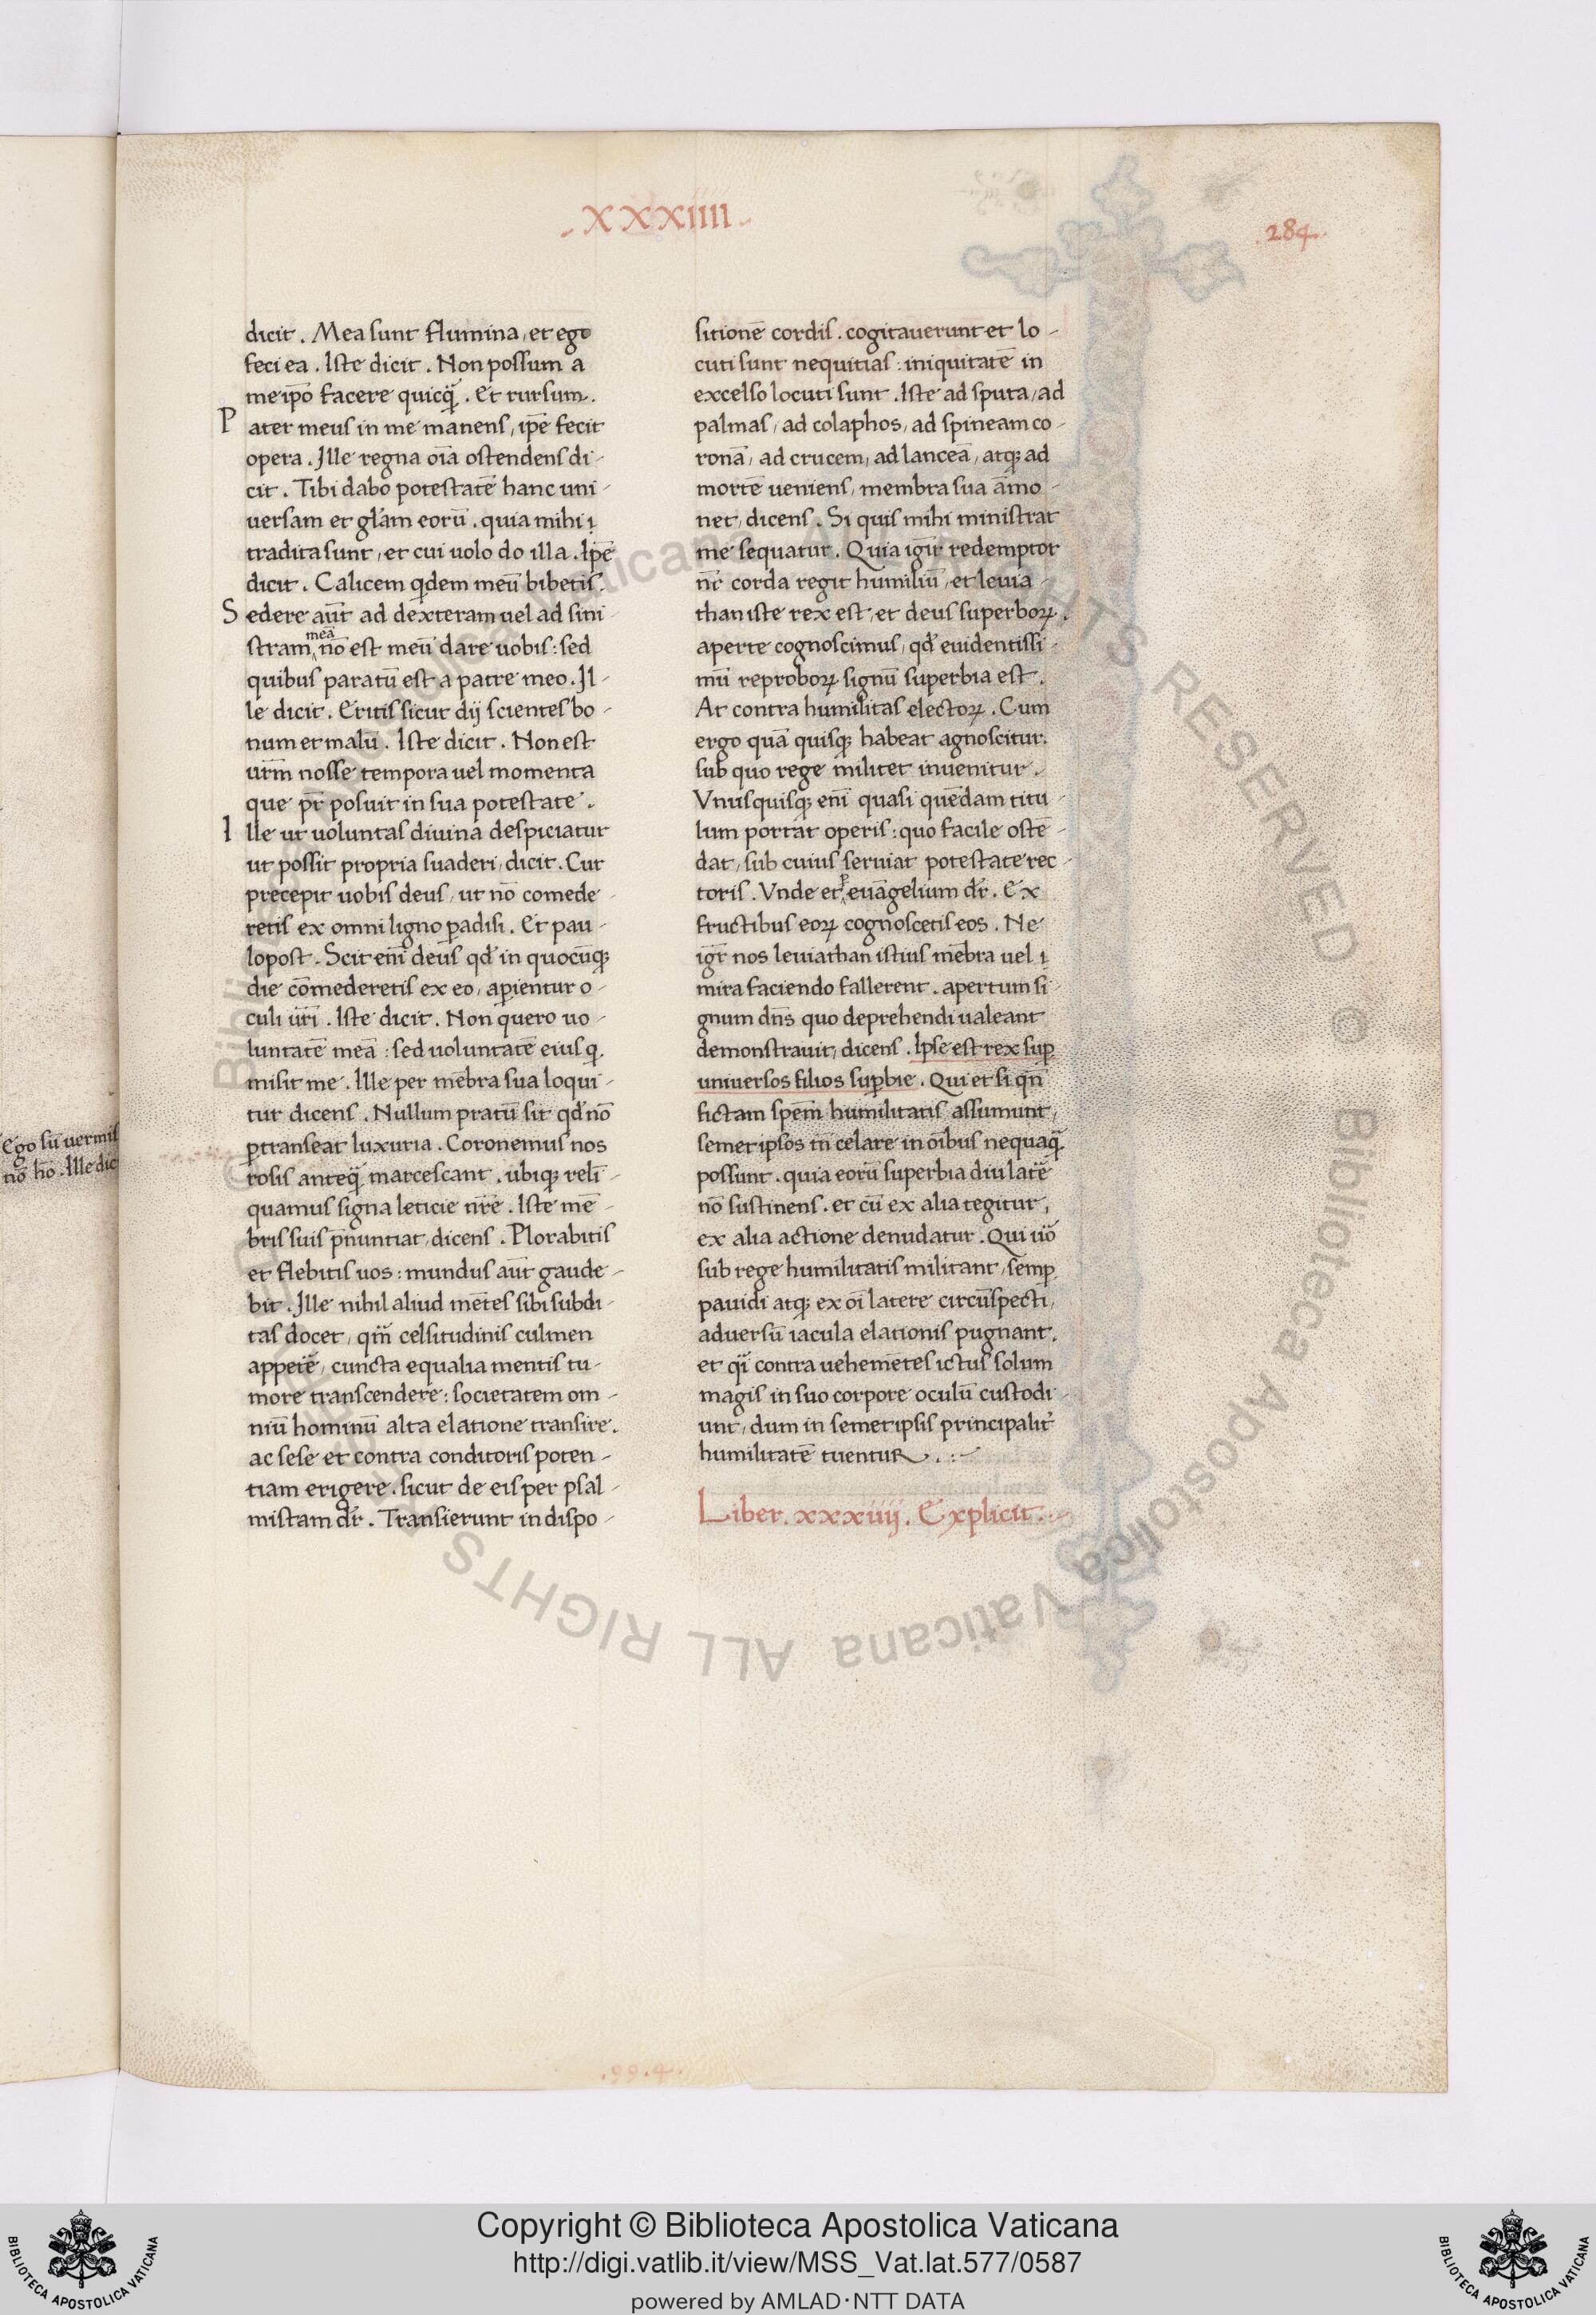 .XXXIIII.
.284.
dicit. Mea sunt flumina, et ego
feci ea. Iste dicit. Non possum a
me ip̄o facere quicq̄. Et rursum.
Pater meus in me manens, ip̄e fecit
opera. Ille regna oīa ostendens di-
cit. Tibi dabo potestatē hanc uni-
uersam et gl̄am eorū. quia mihi
tradita sunt, et cui uolo do illa. Ip̄e
dicit. Calicem qdem meū bibetis.
Sedere aūt ad dexteram uel ad sini-
stram meā nō est meū dare uobis: sed
quibus paratū est a patre meo. Il-
le dicit. Eritis sicut dij scientes bo-
num et malū. Iste dicit. Non est
ur̄m nosse tempora uel momenta
que pr̄ posuit in sua potestate.
Ille ut uoluntas diuina despiciatur
ut possit propria suaderi, dicit. Cur
precepit uobis deus, ut nō comede-
retis ex omni ligno padisi. Et pau-
lopost. Scit enī deus qd̄ in quocūq;
die cōmederetis ex eo, apientur o-
culi ur̄i. Iste dicit. Non quero uo-
luntatē meā: sed uoluntatē eius q
misit me. Ille per mēbra sua loqui-
tur dicens. Nullum pratū sit qd̄ nō
ptranseat luxuria. Coronemus nos
rosis anteq̄ marcescant. ubiq; reli-
quamus signa leticie nr̄e. Iste mē-
bris suis pn̄untiat, dicens. Plorabitis
et flebitis uos: mundus aūt gaude-
bit. Ille nihil aliud mētes sibi subdi-
tas docet, qm̄ celsitudinis culmen
appetē, cuncta equalia mentis tu-
more transcendere: societatem om-
niū hominū alta elatione transire.
ac sese et contra conditoris poten-
tiam erigere. sicut de eis per psal-
mistam dr̄. Transierunt in dispo-
sitionē cordis. cogitauerunt et lo-
cuti sunt nequitias: iniquitatē in
excelso locuti sunt. Iste ad sputa, ad
palmas, ad colaphos, ad spineam co-
ronā, ad crucem, ad lanceā, atq; ad
mortē ueniens, membra sua āmo-
net, dicens. Si quis mihi ministrat
me sequatur. Quia igr̄ redemptor
nr̄ corda regit humiliū, et leuia-
than iste rex est, et deus superboꝝ.
aperte cognoscimus, qd̄ euidentissi-
mū reproboꝝ signū superbia est.
At contra humilitas electoꝝ. Cum
ergo quā quisq; habeat agnoscitur.
sub quo rege militet inuenitur.
Vnusquisq; enī quasi quēdam titu-
lum portat operis: quo facile ostē-
dat, sub cuius seruiat potestate rec-
toris. Vnde et p euāgelium dr̄. Ex
fructibus eoꝝ cognoscetis eos. Ne
igr̄ nos leuiathan istius mēbra uel
mira faciendo fallerent. apertum si-
gnum dn̄s quo deprehendi ualeant
demonstrauit, dicens. Ipse est rex sup
uniuersos filios supbie. Qui et si qn̄
fictam spem̄ humilitatis assumunt,
semet ipsos tn̄ celare in oībus nequaq̄
possunt. quia eorū superbia diu latē
nō sustinens. et cū ex alia tegitur,
ex alia actione denudatur. Qui uō
sub rege humilitatis militant, semp
pauidi atq; ex oī latere circūspecti,
aduersū iacula elationis pugnant.
et qi contra uehemētes ictus solum
magis in suo corpore oculū custodi-
unt, dum in semetipsis principalit̄
humilitatē tuentur.
Liber. xxxiiij. Explicit.
Ego sū uermis
nō hō. Ille dic
Copyright © Biblioteca Apostolica Vaticana
http://digi.vatlib.it/view/MSS_Vat.lat.577/0587
powered by AMLAD·NTT DATA
BIBLIOTECA APOSTOLICA VATICANA
BIBLIOTECA APOSTOLICA VATICANA
© Biblioteca Apostolica Vaticana ALL RIGHTS RESERVED © Biblioteca Apostolica Vaticana ALL RIGHTS